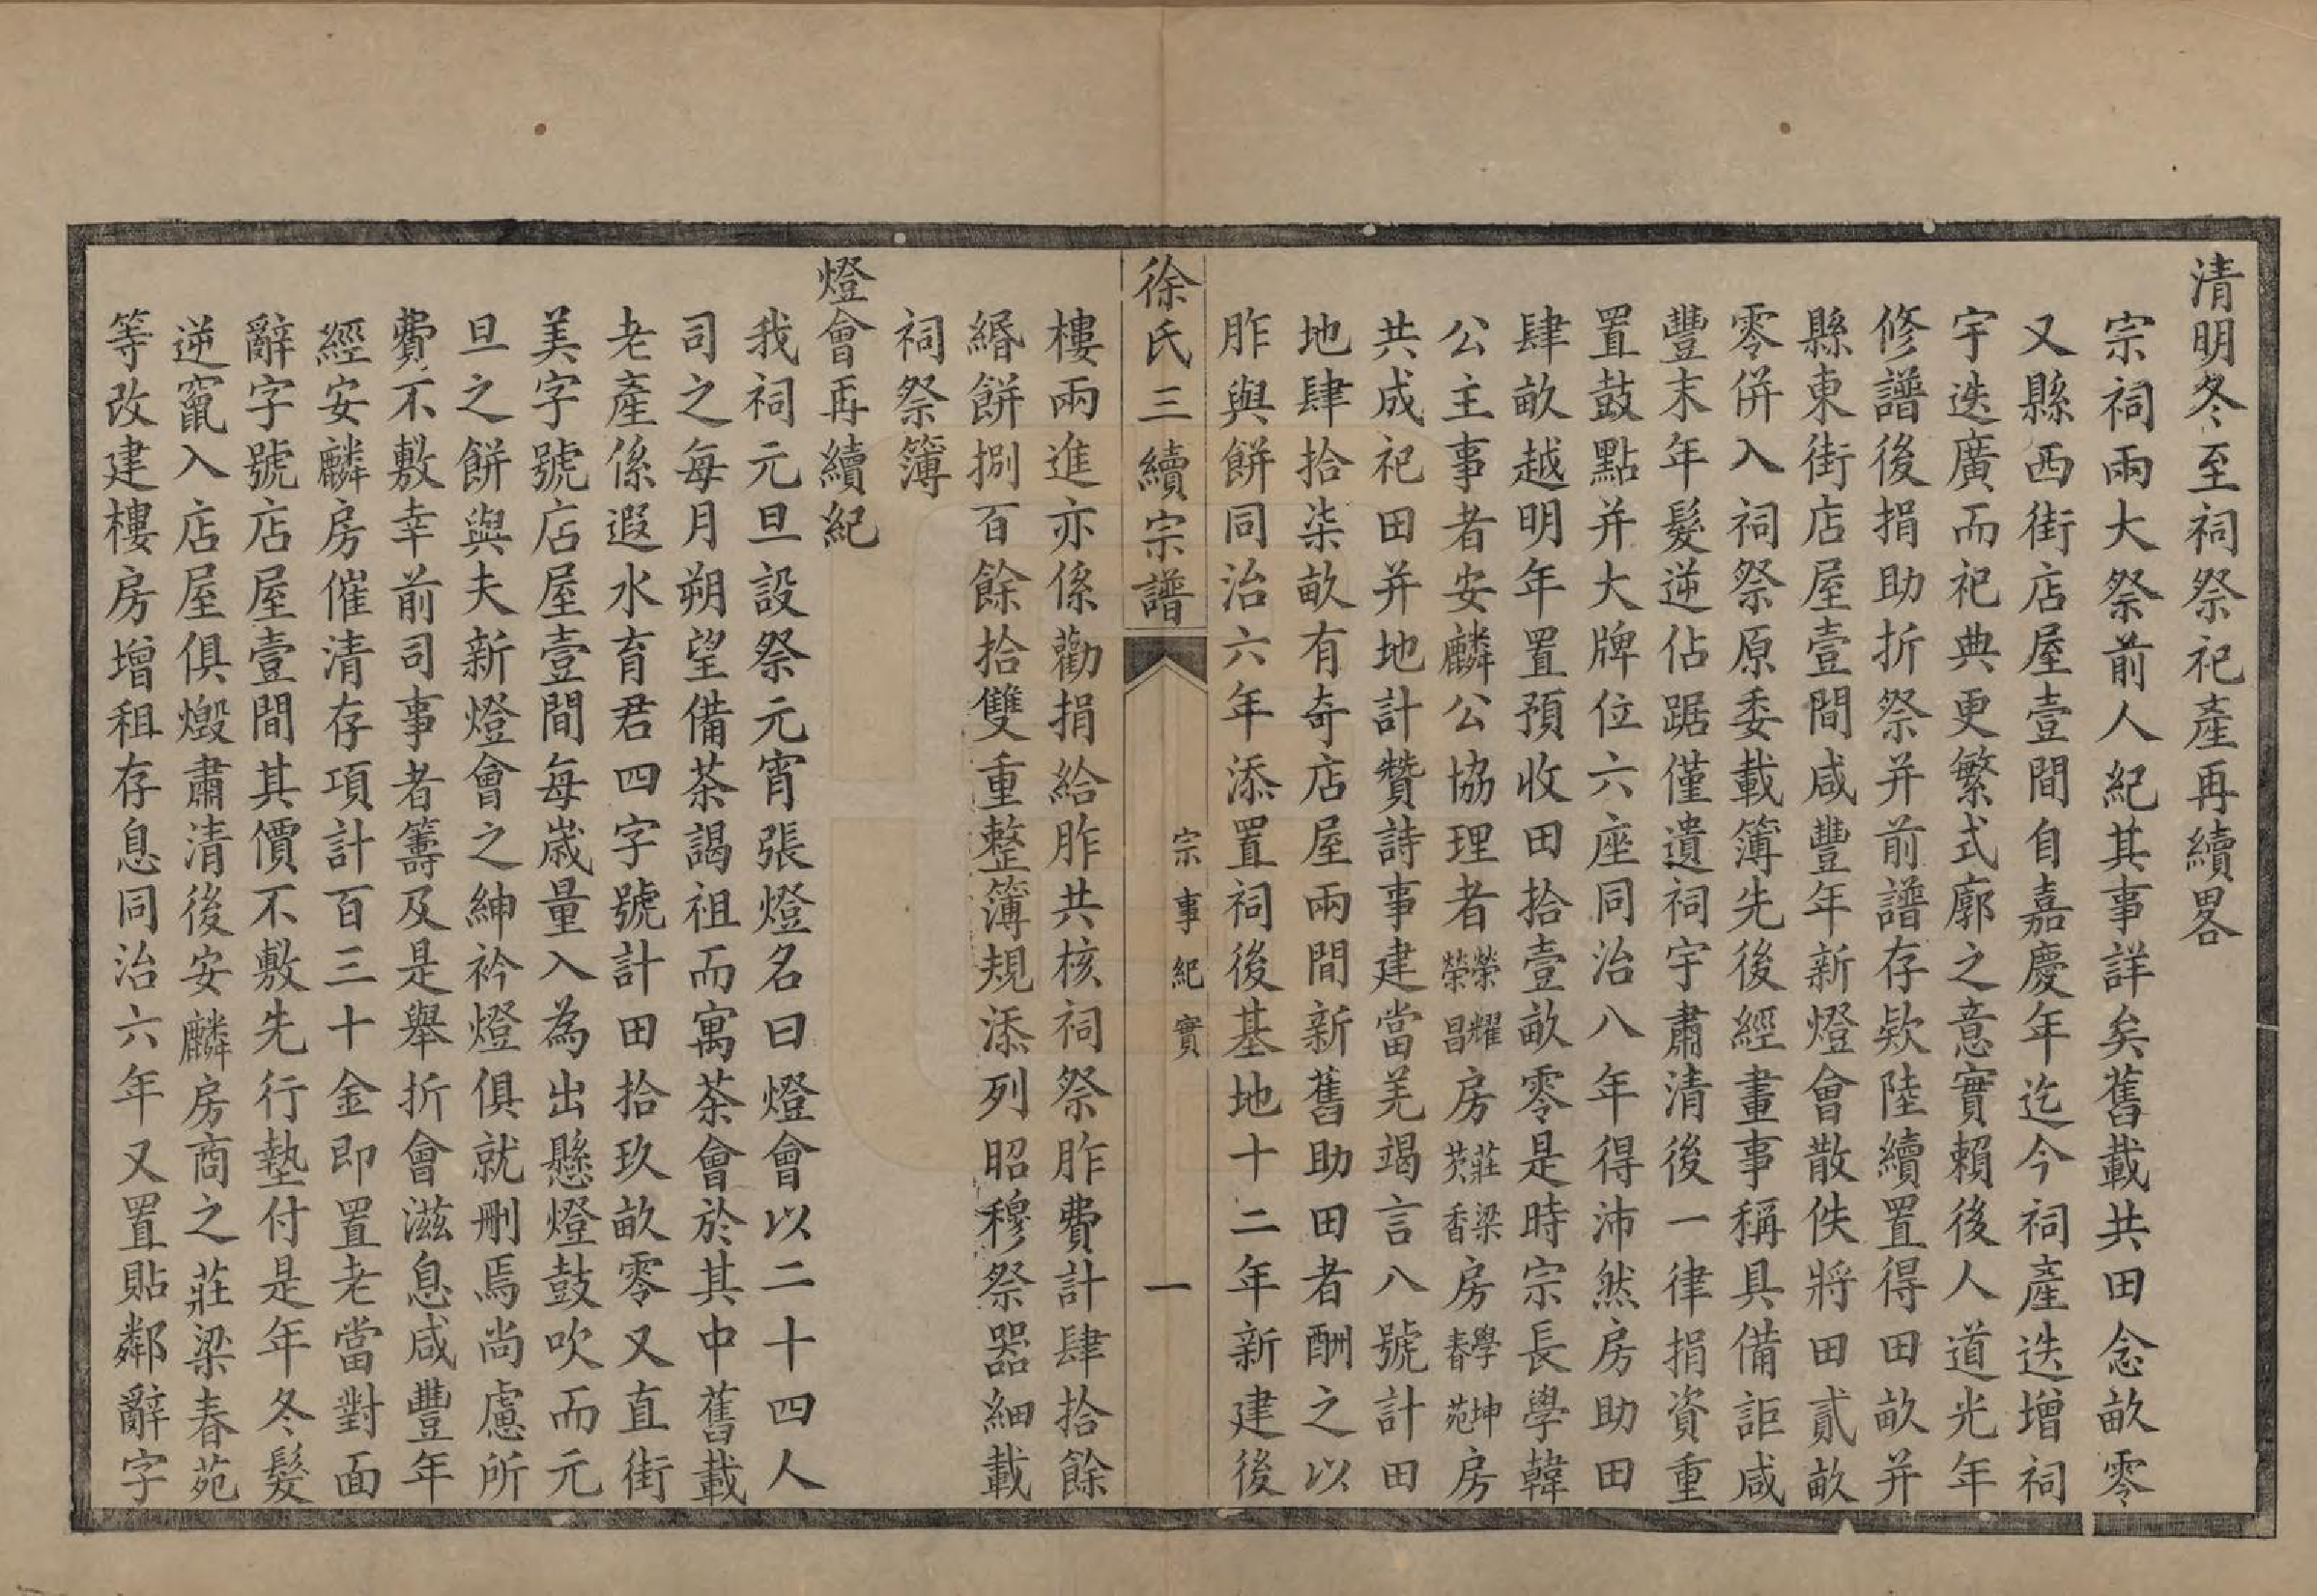 清明冬至祠祭祀產再續畧
宗祠兩大祭前人紀其事詳矣舊載共田念畝零
又縣西街店屋壹間自嘉慶年迄今祠產迭增祠
宇迭廣而祀典更繁式廓之意實賴後人道光年
修譜後捐助折祭并前譜存欵陸續置得田畝并
縣東街店屋壹間咸豐年新燈會散佚將田貳畝
零併入祠祭原委載簿先後經畫事稱具備詎咸
豐末年髮逆佔踞僅遺祠宇肅清後一律捐資重
置鼓點并大牌位六座同治八年得沛然房助田
肆畝越明年置預收田拾壹畝零是時宗長學韓
公主事者安麟公協理者榮耀榮昌房莊梁芡香房學坤春苑房
共成祀田并地計贊詩事建當羌竭言八號計田
地肆拾柒畝有奇店屋兩間新舊助田者酬之以
胙與餅同治六年添置祠後基地十二年新建後
徐氏三續宗譜
宗事紀實
一
樓兩進亦係勸捐給胙共核祠祭胙費計肆拾餘
緡餅捌百餘拾雙重整簿規添列昭穆祭器細載
祠祭簿
燈會再續紀
我祠元旦設祭元宵張燈名曰燈會以二十四人
司之每月朔望備茶謁祖而寓茶會於其中舊載
老產係遐水育君四字號計田拾玖畝零又直街
美字號店屋壹間每歲量入為出懸燈鼓吹而元
旦之餅與夫新燈會之紳衿燈俱就刪焉尚慮所
費不敷幸前司事者籌及是舉折會滋息咸豐年
經安麟房催清存項計百三十金即置老當對面
辭字號店屋壹間其價不敷先行墊付是年冬髮
逆竄入店屋俱燬肅清後安麟房商之莊梁春苑
等改建樓房增租存息同治六年又置貼鄰辭字